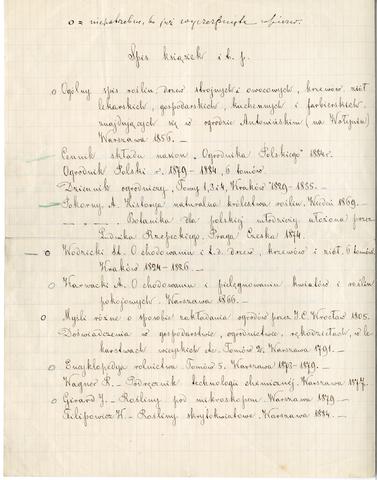 o = niepotrzebne, bo już wyczerpnięte wpierw.
Spis książek i t. p.
o Ogólny spis roślin, drzew strojnych i owocowych, krzewów, ziół
lekarskich, gospodarskich, kuchennych i farbierskich
znajdujących się w ogrodzie Antonińskim (na Wołyniu)
Warszawa 1856. —
Cennik składu nasion „Ogrodnika Polskiego" 1884r.
Ogrodnik Polski r. 1879 - 1884, 6 tomów.
Dziennik ogrodniczy. Tomy 1, 3 i 4. Kraków 1829-1835. —
Pokorny A. Historya naturalna królestwa roślin. Wiedeń 1869. —
Botanika dla polskiej młodzieży ułożona przez
Ludwika Rzepeckiego. Praga Czeska 1874.
— o Wodzicki St. O chodowaniu i t. d. drzew, krzewów i ziół. 6 tomów.
Kraków 1824-1826. —
o Karwacki A. O chodowaniu i pielęgnowaniu kwiatów i roślin
pokojowych. Warszawa 1866. —
o Myśli różne o sposobie zakładania ogrodów przez J. C. Wrocław 1805.
Doświadczenia w gospodarstwie, ogrodnictwie, rękodziełach, w le-
karstwach wiejskich etc. Tomów 2. Warszawa 1791. —
o Encyklopedya rolnictwa Tomów 5. Warszawa 1873-1879. —
Wagner R. — Podręcznik technologii chemicznej. Warszawa 1877.
o Gérard J. — Rośliny pod mikroskopem. Warszawa 1879 —
Filipowicz K. — Rośliny skrytokwiatowe. Warszawa 1884. —